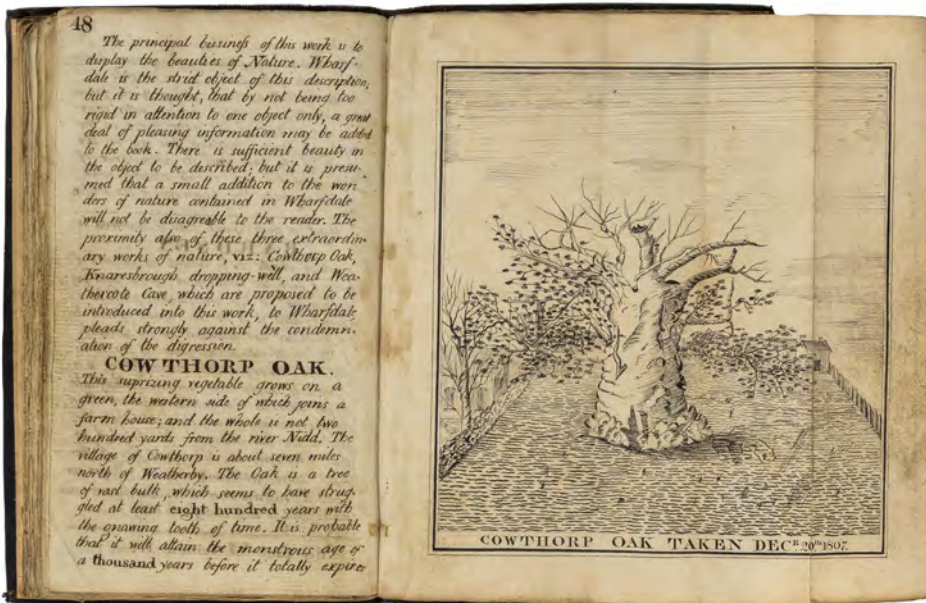 48
The principal businefs of this work is to
display the beauties of Nature. Wharf-
dale is the strict object of this description;
but it is thought, that by not being too
rigid in attention to one object only, a great
deal of pleasing information may be added
to the book. There is sufficient beauty in
the object to be described; but it is presu-
med that a small addition to the won
ders of nature contained in Wharfdale
will not be disagreable to the reader. The
proximity also of these three extraordin-
ary works of nature, viz: Cowthorp Oak,
Knaresbrough dropping-well, and Wea-
thercote Cave, which are proposed to be
introduced into this work, to Wharfdale,
pleads strongly against the condemn-
ation of the digression.
COWTHORP OAK.
This suprizing vegetable grows on a
green, the western side of which joins a
farm house; and the whole is not two
hundred yards from the river Nidd. The
village of Cowthorp is about seven miles
north of Weatherby. The Oak is a tree
of vast bulk, which seems to have strug-
gled at least eight hundred years with
the gnawing tooth of time. It is probable
that it will attain the monstrous age of
a thousand years before it totally expires
COWTHORP OAK TAKEN DECR. 20th 1807.